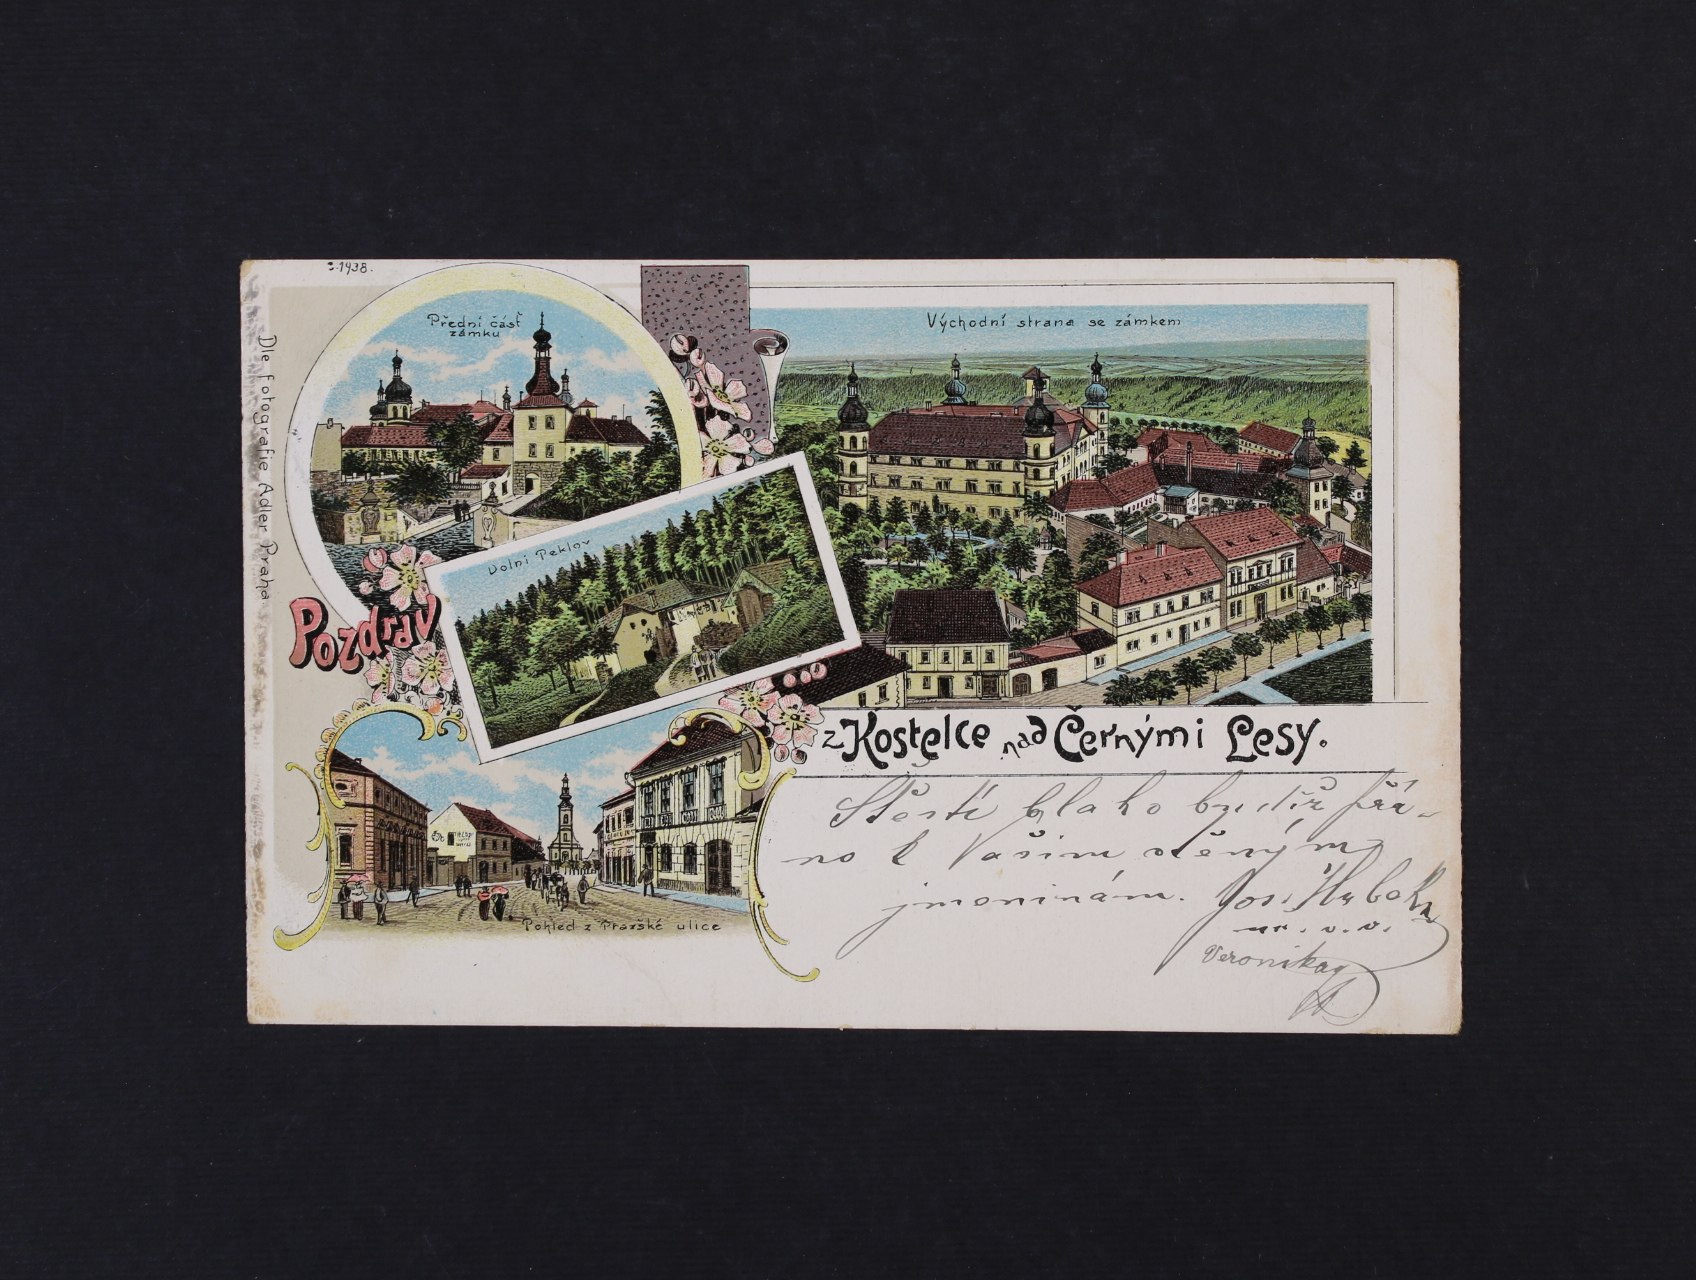 č.1938.
Dle fotografie Adler Praha
Přední část
zámku
Východní strana se zámkem
Dolní Peklov
Pozdrav
z Kostelce nad Černými Lesy.
Pohled z Pražské ulice
Štěstí blaho budiž přá-
no k Vašim ctěným
jmeninám. Jos.
Veronika